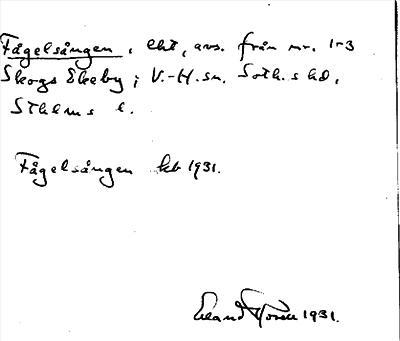 Fågelsången, lht, avs. från nr. 1-3
Skogs Ekeby i V.-H. sn. Soth.s hd.
Sthlms l.
Fågelsången kb 1931.
Erland Rosell 1931.